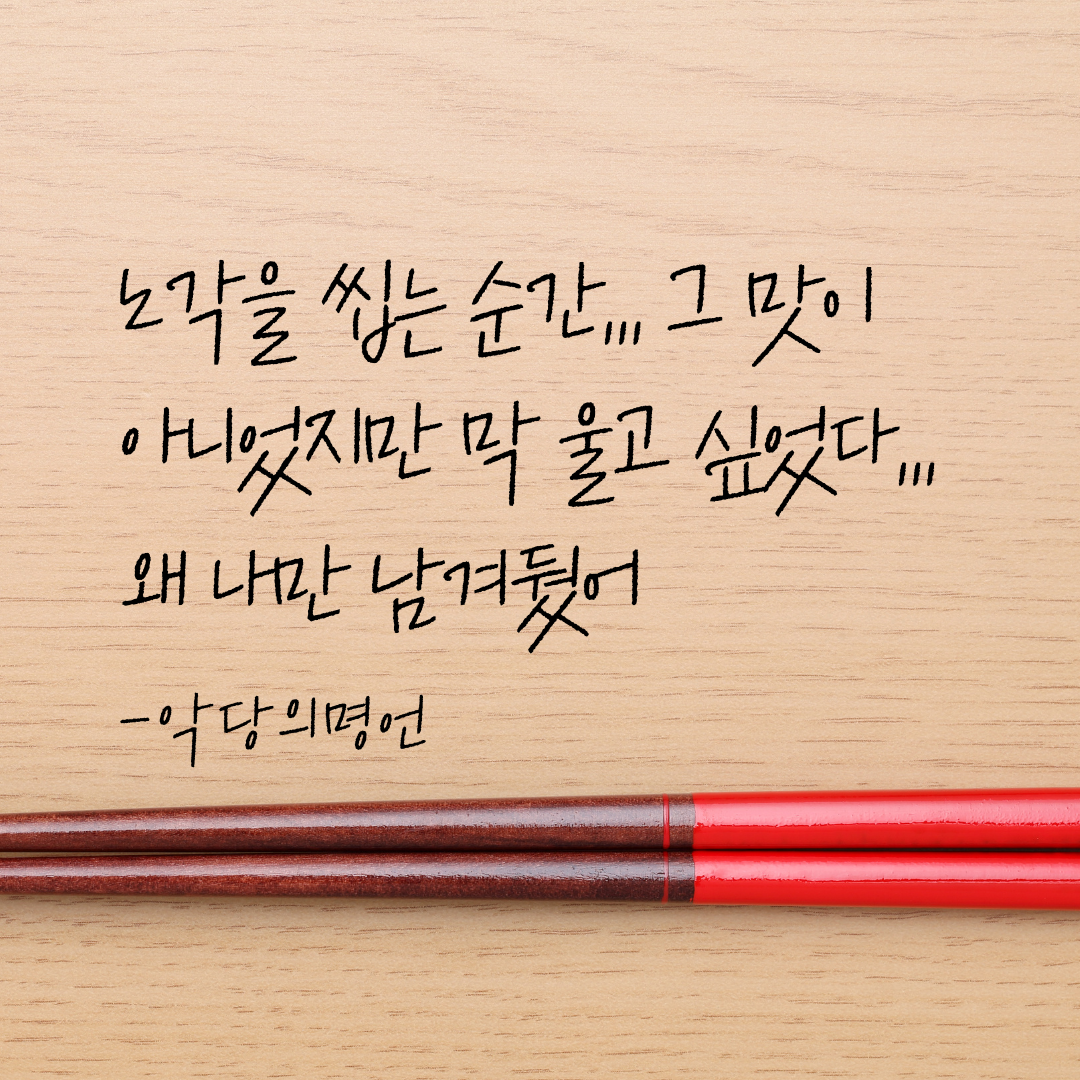 노각을 씹는 순간,,, 그 맛이
아니었지만 막 울고 싶었다,,,
왜 나만 남겨뒀어
-악당의명언